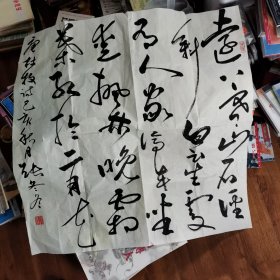 遠上寒山石徑
斜白云生處
有人家停车坐
爱楓林晚霜
葉红於二月花
唐杜牧诗己亥秋月